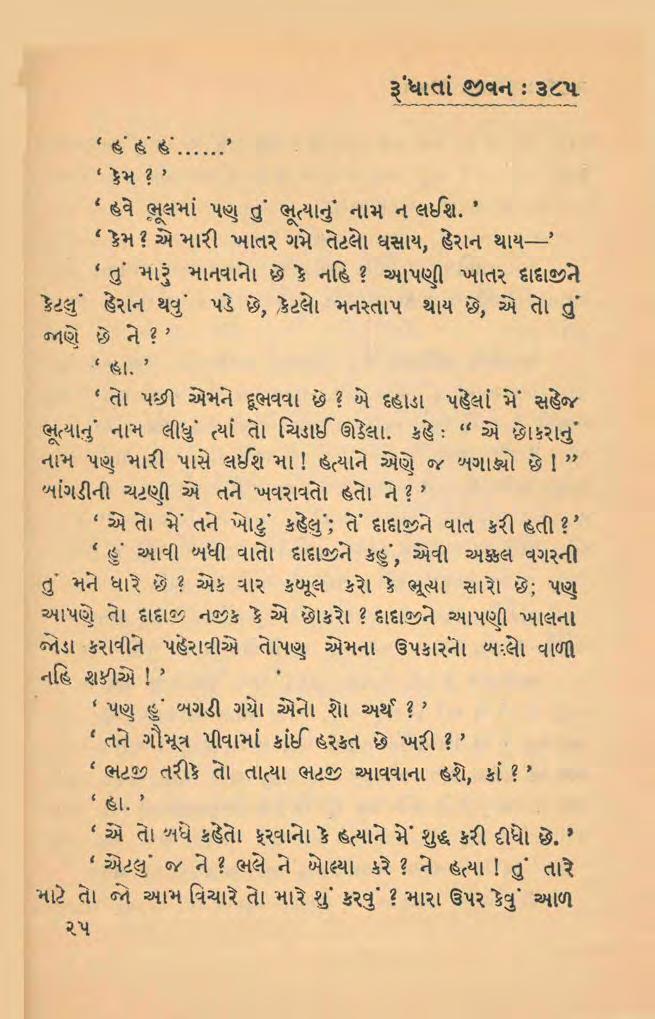 રૂંધાતાં જીવન : ૩૮૫
‘ હં હં હં......’
‘ કેમ ? ’
‘ હવે ભૂલમાં પણ તું ભૂત્યાનું નામ ન લઈશ. ’
‘ કેમ ? એ મારી ખાતર ગમે તેટલો ઘસાય, હેરાન થાય—’
‘ તું મારું માનવાનો છે કે નહિ ? આપણી ખાતર દાદાજીને
કેટલું હેરાન થવું પડે છે, કેટલો મનસ્તાપ થાય છે, એ તો તું
જાણે છે ને ? ’
‘ હા. ’
‘ તો પછી એમને દૂભવવા છે ? બે દહાડા પહેલાં મેં સહેજ
ભૂત્યાનું નામ લીધું ત્યાં તો ચિડાઈ ઊઠેલા. કહે : “ એ છોકરાનું
નામ પણ મારી પાસે લઈશ મા ! હત્યાને એણે જ બગાડ્યો છે ! ”
બાંગડીની ચટણી એ તને ખવરાવતો હતો ને ? ’
‘ એ તો મેં તને ખોટું કહેલું; તેં દાદાજીને વાત કરી હતી ?’
‘ હું આવી બધી વાતો દાદાજીને કહું, એવી અક્કલ વગરની
તું મને ધારે છે ? એક વાર કબૂલ કરો કે ભૂત્યા સારો છે; પણ
આપણે તો દાદાજી નજીક કે એ છોકરો ? દાદાજીને આપણી ખાલના
જોડા કરાવીને પહેરાવીએ તોપણ એમના ઉપકારનો બદલો વાળી
નહિ શકીએ ! ’
‘ પણ હું બગડી ગયો એનો શો અર્થ ? ’
‘ તને ગૌમૂત્ર પીવામાં કાંઈ હરકત છે ખરી ? ’
‘ ભટજી તરીકે તો તાત્યા ભટજી આવવાના હશે, કાં ? ’
‘ હા. ’
‘ એ તો બધે કહેતો ફરવાનો કે હત્યાને મેં શુદ્ધ કરી દીધો છે. ’
‘ એટલું જ ને ? ભલે ને બોલ્યા કરે ? ને હત્યા ! તું તારે
માટે તો જો આમ વિચારે તો મારે શું કરવું ? મારા ઉપર કેવું આળ
૨૫